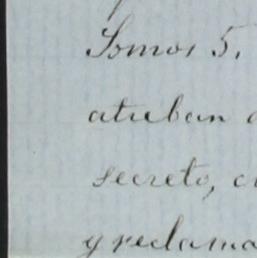 Somos 5,
atreban
secreto,
y reclama